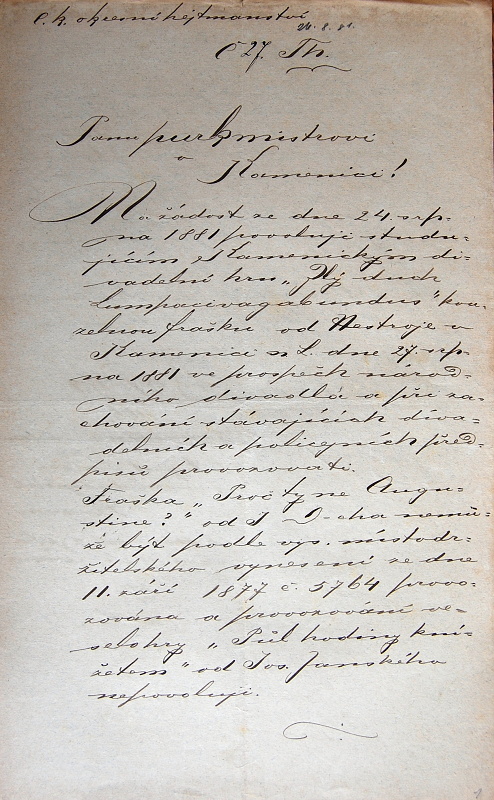 C. k. okresní hejtmanství
24. 8. 81.
Č 27. Th.
Panu purkmistrovi
v
Kamenici!
Na žádost ze dne 24 srp-
na 1881 povoluji studu-
jícím Kamenickým di-
vadelní hru „Zlý duch
Lumpacivagabundus" kou-
zelnou frašku od Nestroje v
Kamenici n L. dne 27. srp-
na 1881 ve prospěch národ-
ního divadla a při za-
chování stávajících diva-
delních a policejních před-
pisů provozovati.
Fraška „Proč ty ne Augu-
stine?" od J D-cha nemů-
že být podle vys. místodr-
žitelského vynesení ze dne
11. září 1877 č. 5764 provo-
zována a provozování ve-
selohry „Půl hodiny kní-
žetem" od Jos. Janského
nepovoluji.